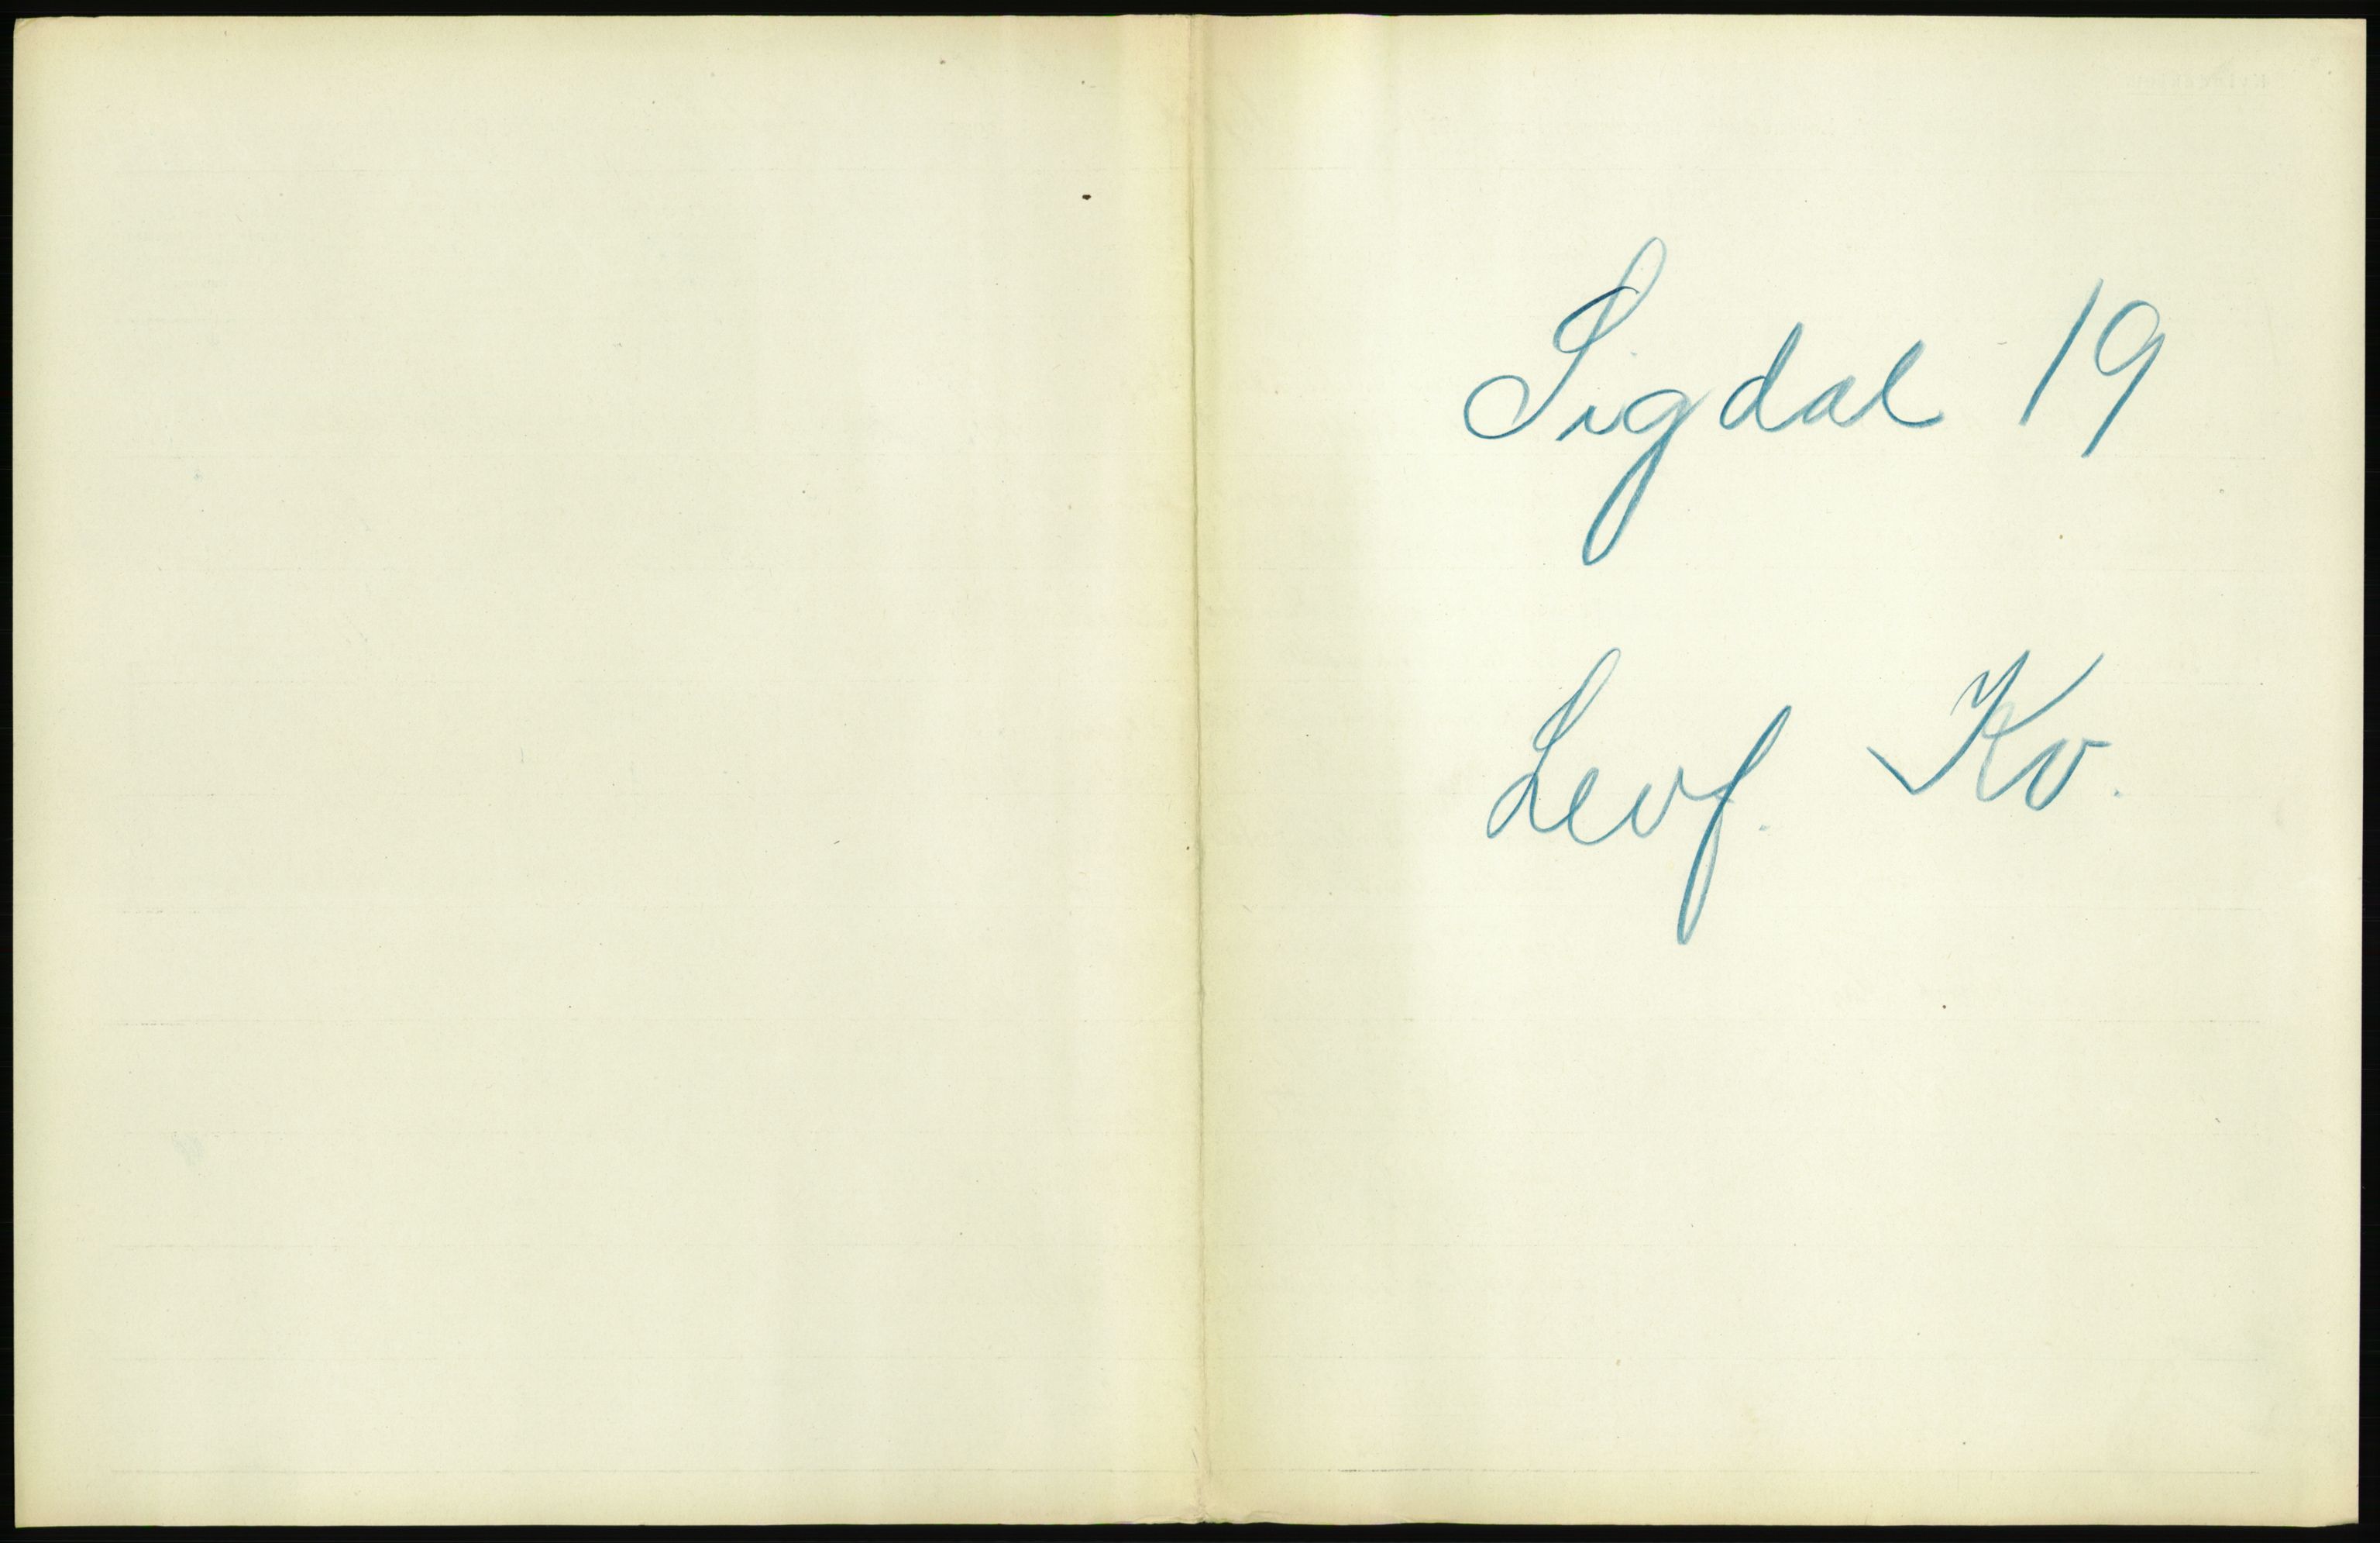 Sigdal 19
Levf. Kv.